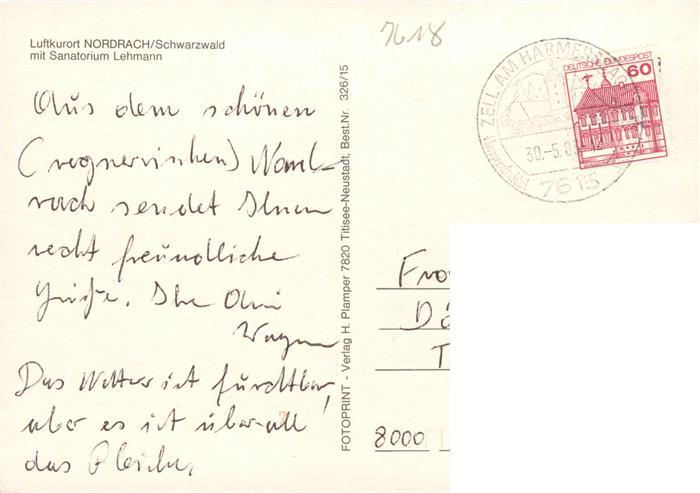 Luftkurort NORDRACH/Schwarzwald
mit Sanatorium Lehmann
7618
Aus dem schönen
(regnerischen) Nord-
rach sendet Ihnen
recht freundliche
Grüße. Ihr
Wagner
Das Wetter ist furchtbar,
aber es ist überall!
das Gleiche,
FOTOPRINT - Verlag H. Plamper 7820 Titisee-Neustadt, Best.Nr. 326/15
ZELL AM HARMERSBACH
30.-5.
7615
DEUTSCHE BUNDESPOST
60
Fra
Dö
T
8000